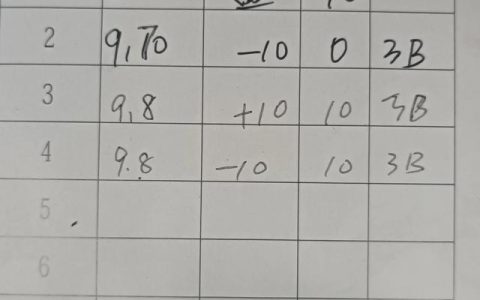 2 9,70 -10 0 3B
3 9,8 +10 10 3B
4 9.8 -10 10 3B
5
6